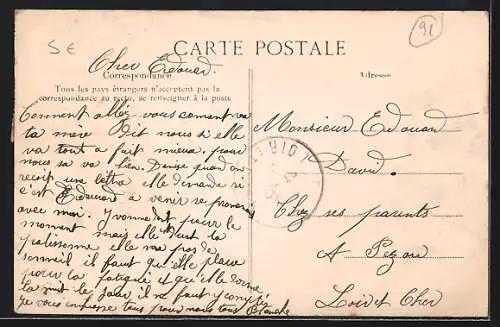 5 €
91
CARTE POSTALE
Cher Edouard.
Correspondance
Adresse
Tous les pays étrangers n'acceptent pas la
correspondance au recto, se renseigner à la poste
Comment allez vous comment va
ta mere Dit nous si elle
va tout a fait mieux. pour
nous sa va bien. Denise quand on
recoit une lettre elle demande si
c'est Edouard a venir se promener
avec moi. Yvonne pour le
moment mais elle fait la
elle na pas de
someil il faut qu'elle pleure
pour la fatigué et qu'elle dorme
la nuit le jour il ne faut y compter
je vous embrasse tous pour nous tous Blanche
Monsieur Edouard
David.
Chez ses parents
A Pezou
Loir et Cher
LOIR